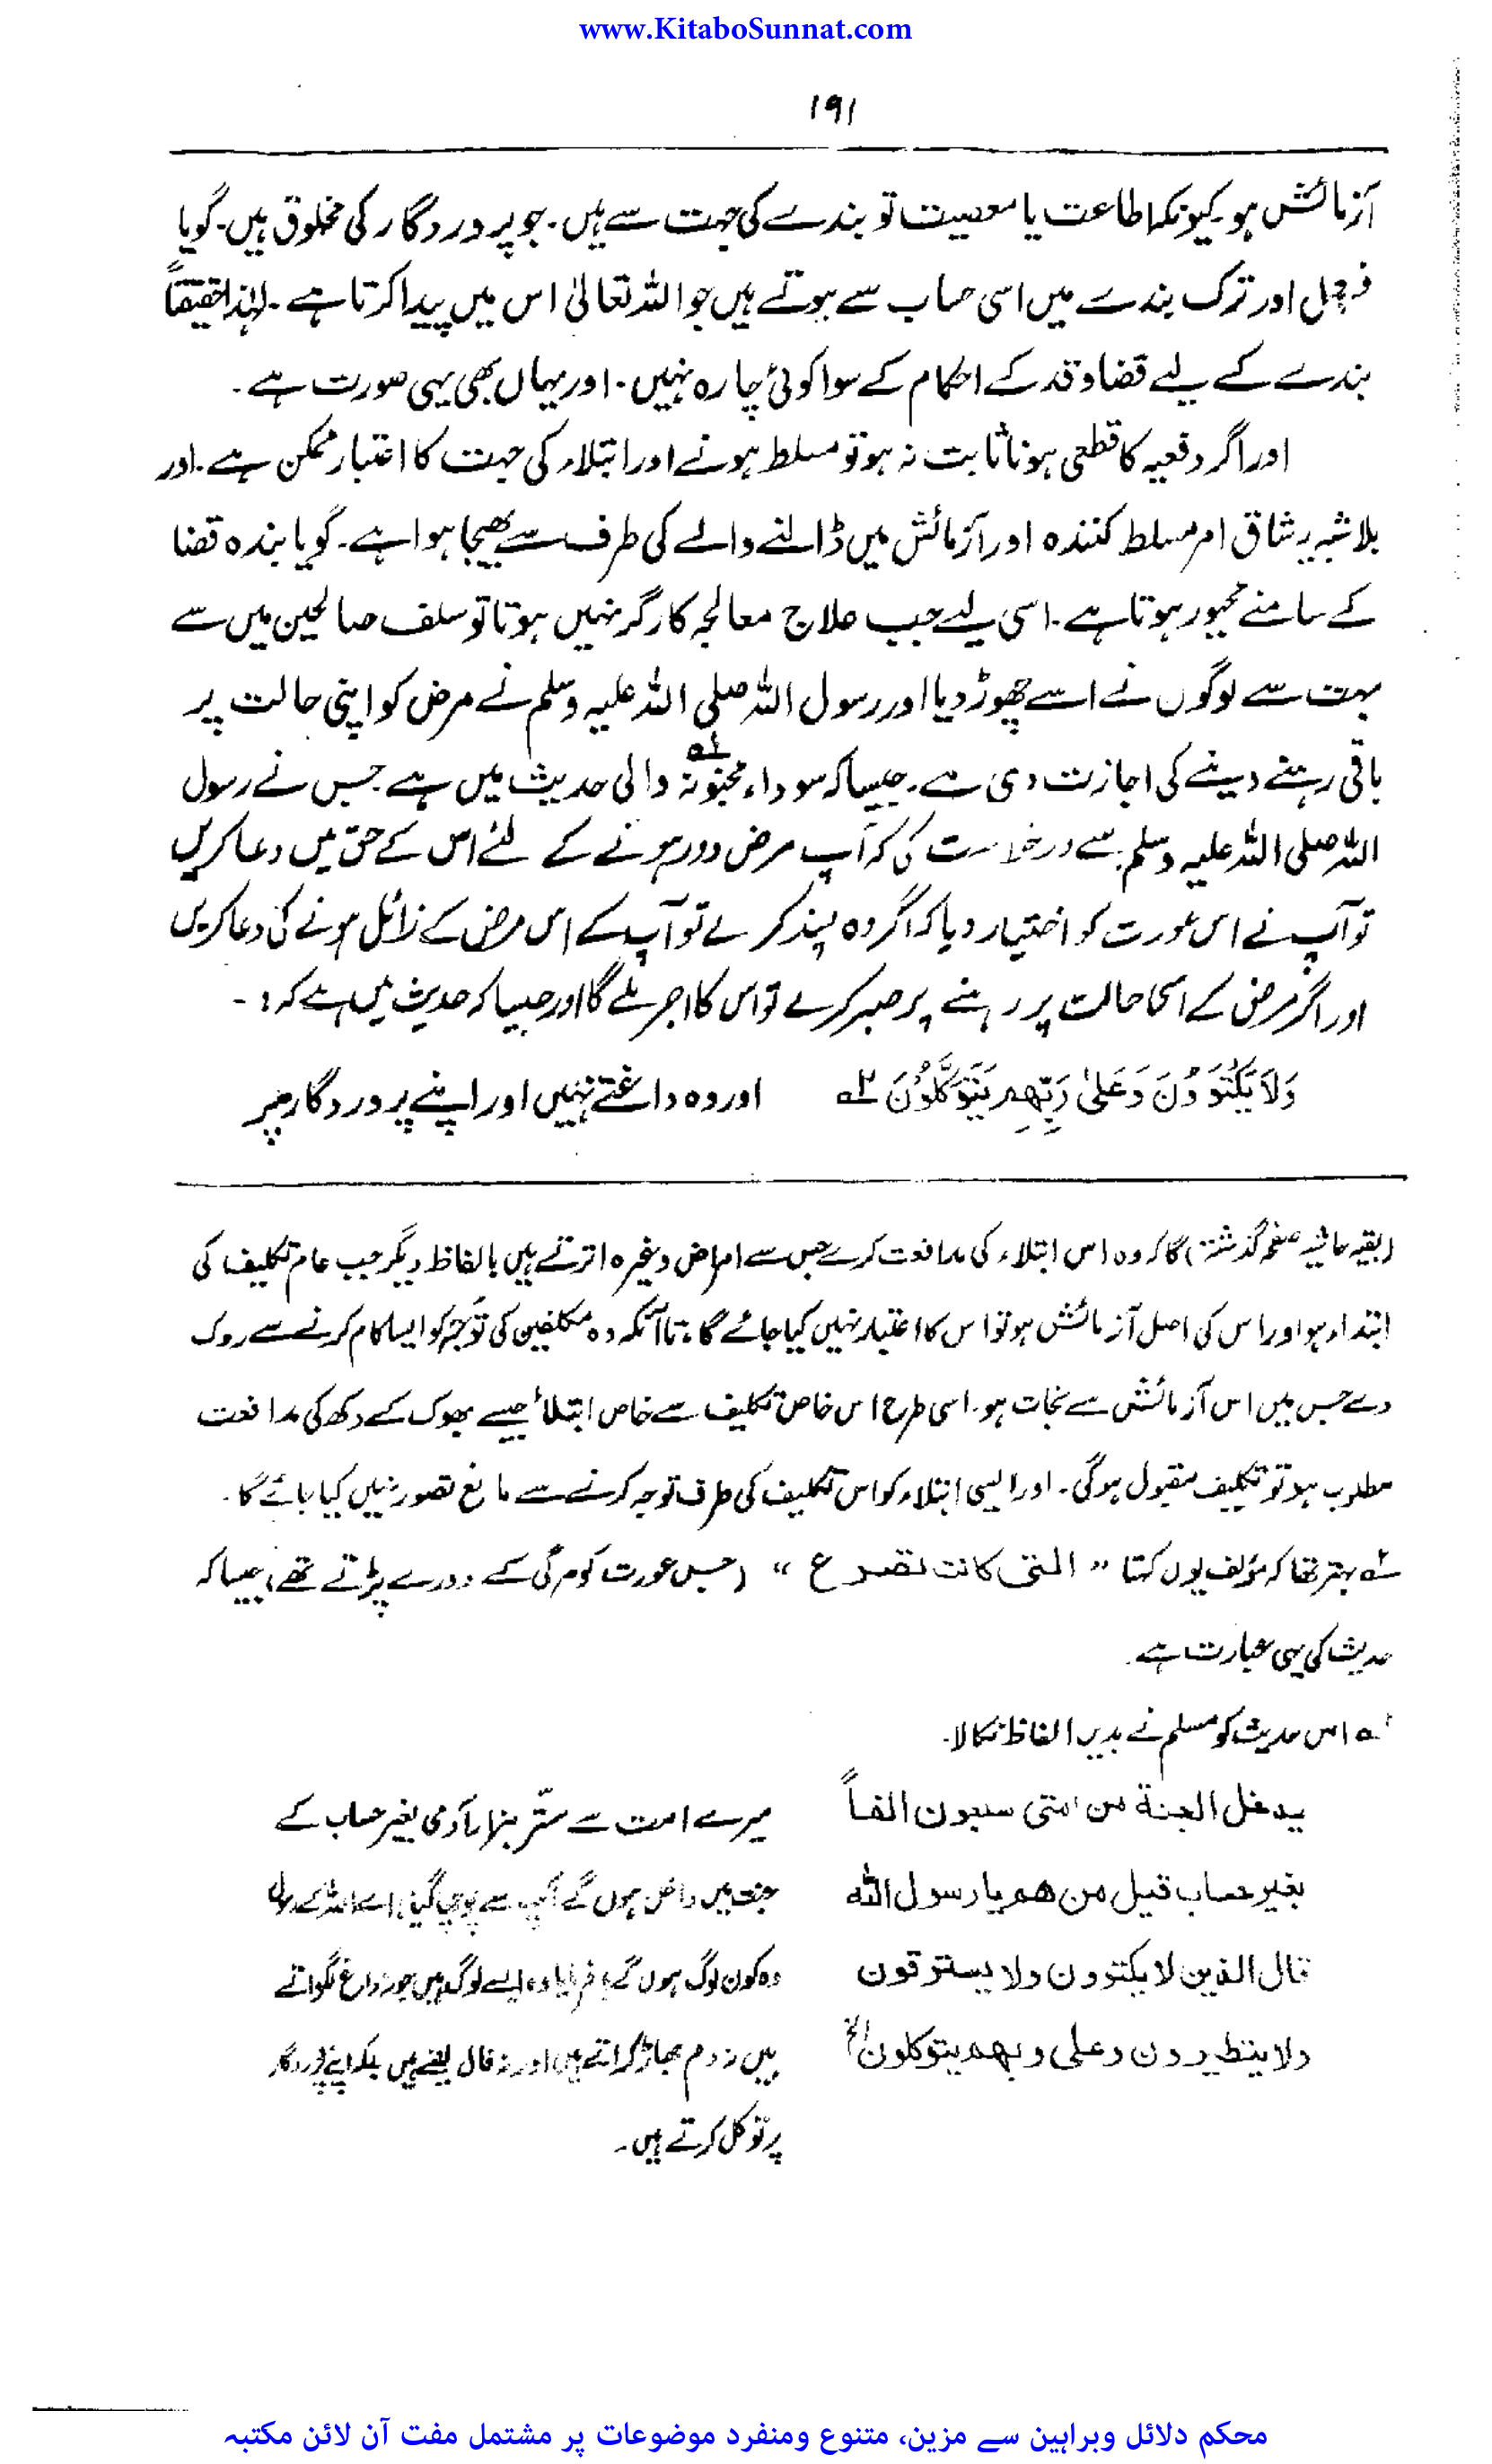 www.KitaboSunnat.com
۱۹۱
آزمائش ہو۔ کیونکہ اطاعت یا معصیت تو بندے کی جہت سے ہیں۔ جو پروردگار کی مخلوق ہیں۔ گویا
فعل اور ترک بندے میں اسی حساب سے ہوتے ہیں جو اللہ تعالیٰ اس میں پیدا کرتا ہے۔ لہٰذا حقیقتاً
بندے کے لیے قضا و قدر کے احکام کے سوا کوئی چارہ نہیں۔ اور یہاں بھی یہی صورت ہے۔
اور اگر دفعیہ کا قطعی ہونا ثابت نہ ہو تو مسلط ہونے اور ابتلاء کی جہت کا اعتبار ممکن ہے۔ اور
بلاشبہ یہ شاق امر مسلط کنندہ اور آزمائش میں ڈالنے والے کی طرف سے بھیجا ہوا ہے۔ گویا بندہ قضا
کے سامنے مجبور ہوتا ہے۔ اسی لیے جب علاج معالجہ کارگر نہیں ہوتا تو سلف صالحین میں سے
بہت سے لوگوں نے اسے چھوڑ دیا اور رسول اللہ صلی اللہ علیہ وسلم نے مرض کو اپنی حالت پر
باقی رہنے دینے کی اجازت دی ہے۔ جیسا کہ سوداء مجنونہ ۱ے والی حدیث میں ہے جس نے رسول
اللہ صلی اللہ علیہ وسلم سے درخواست کی کہ آپ مرض دور ہونے کے لئے اس کے حق میں دعا کریں
تو آپ نے اس عورت کو اختیار دیا کہ اگر وہ پسند کرے تو آپ کے اس مرض کے زائل ہونے کی دعا کریں
اور اگر مرض کے اسی حالت پر رہنے پر صبر کرے تو اس کا اجر ملے گا اور جیسا کہ حدیث میں ہے کہ :-
وَلَا يَكْتَوُوْنَ وَعَلىٰ رَبِّهِم يَتَوَكَّلُوْنَ ۲ے اور وہ داغتے نہیں اور اپنے پروردگار پر
(بقیہ حاشیہ صفحہ گذشتہ) گا کہ وہ اس ابتلاء کی مدافعت کرے جس سے امراض وغیرہ اترتے ہیں بالفاظ دیگر جب عام تکلیف کی
ابتداء ہو اور اس کی اصل آزمائش ہو تو اس کا اعتبار نہیں کیا جائے گا، تا آنکہ وہ مکلفین کی توجہ کو ایسا کام کرنے سے روک
دے جس میں اس آزمائش سے نجات ہو۔ اسی طرح اس خاص تکلیف سے خاص ابتلاء جیسے بھوک کے دکھ کی مدافعت
مطلوب ہو تو تکلیف مقبول ہوگی۔ اور ایسی ابتلاء کو اس تکلیف کی طرف توجہ کرنے سے مانع تصور نہیں کیا جائے گا۔
۱ے بہتر تھا کہ مؤلف یوں کہتا " التی کانت تصرع " (جس عورت کو مرگی کے دورے پڑتے تھے) جیسا کہ
حدیث کی یہی عبارت ہے۔
۲ے اس حدیث کو مسلم نے بدیں الفاظ نکالا۔
يدخل الجنة من امتى سبعون الفاً میرے امت سے ستّر ہزار آدمی بغیر حساب کے
بغير حساب قيل من هم يا رسول الله جنت میں داخل ہوں گے آپ سے پوچھا گیا، اے اللہ کے رسول
قال الذين لا يكتوون ولا يسترقون وہ کون لوگ ہوں گے؟ فرمایا وہ ایسے لوگ ہیں جو نہ داغ لگواتے
ولا يتطيرون وعلى ربهم يتوكلون الخ ہیں نہ دم جھاڑ کراتے ہیں اور نہ فال لیتے ہیں بلکہ اپنے پروردگار
پر توکل کرتے ہیں۔
محکم دلائل وبراہین سے مزین، متنوع ومنفرد موضوعات پر مشتمل مفت آن لائن مکتبہ